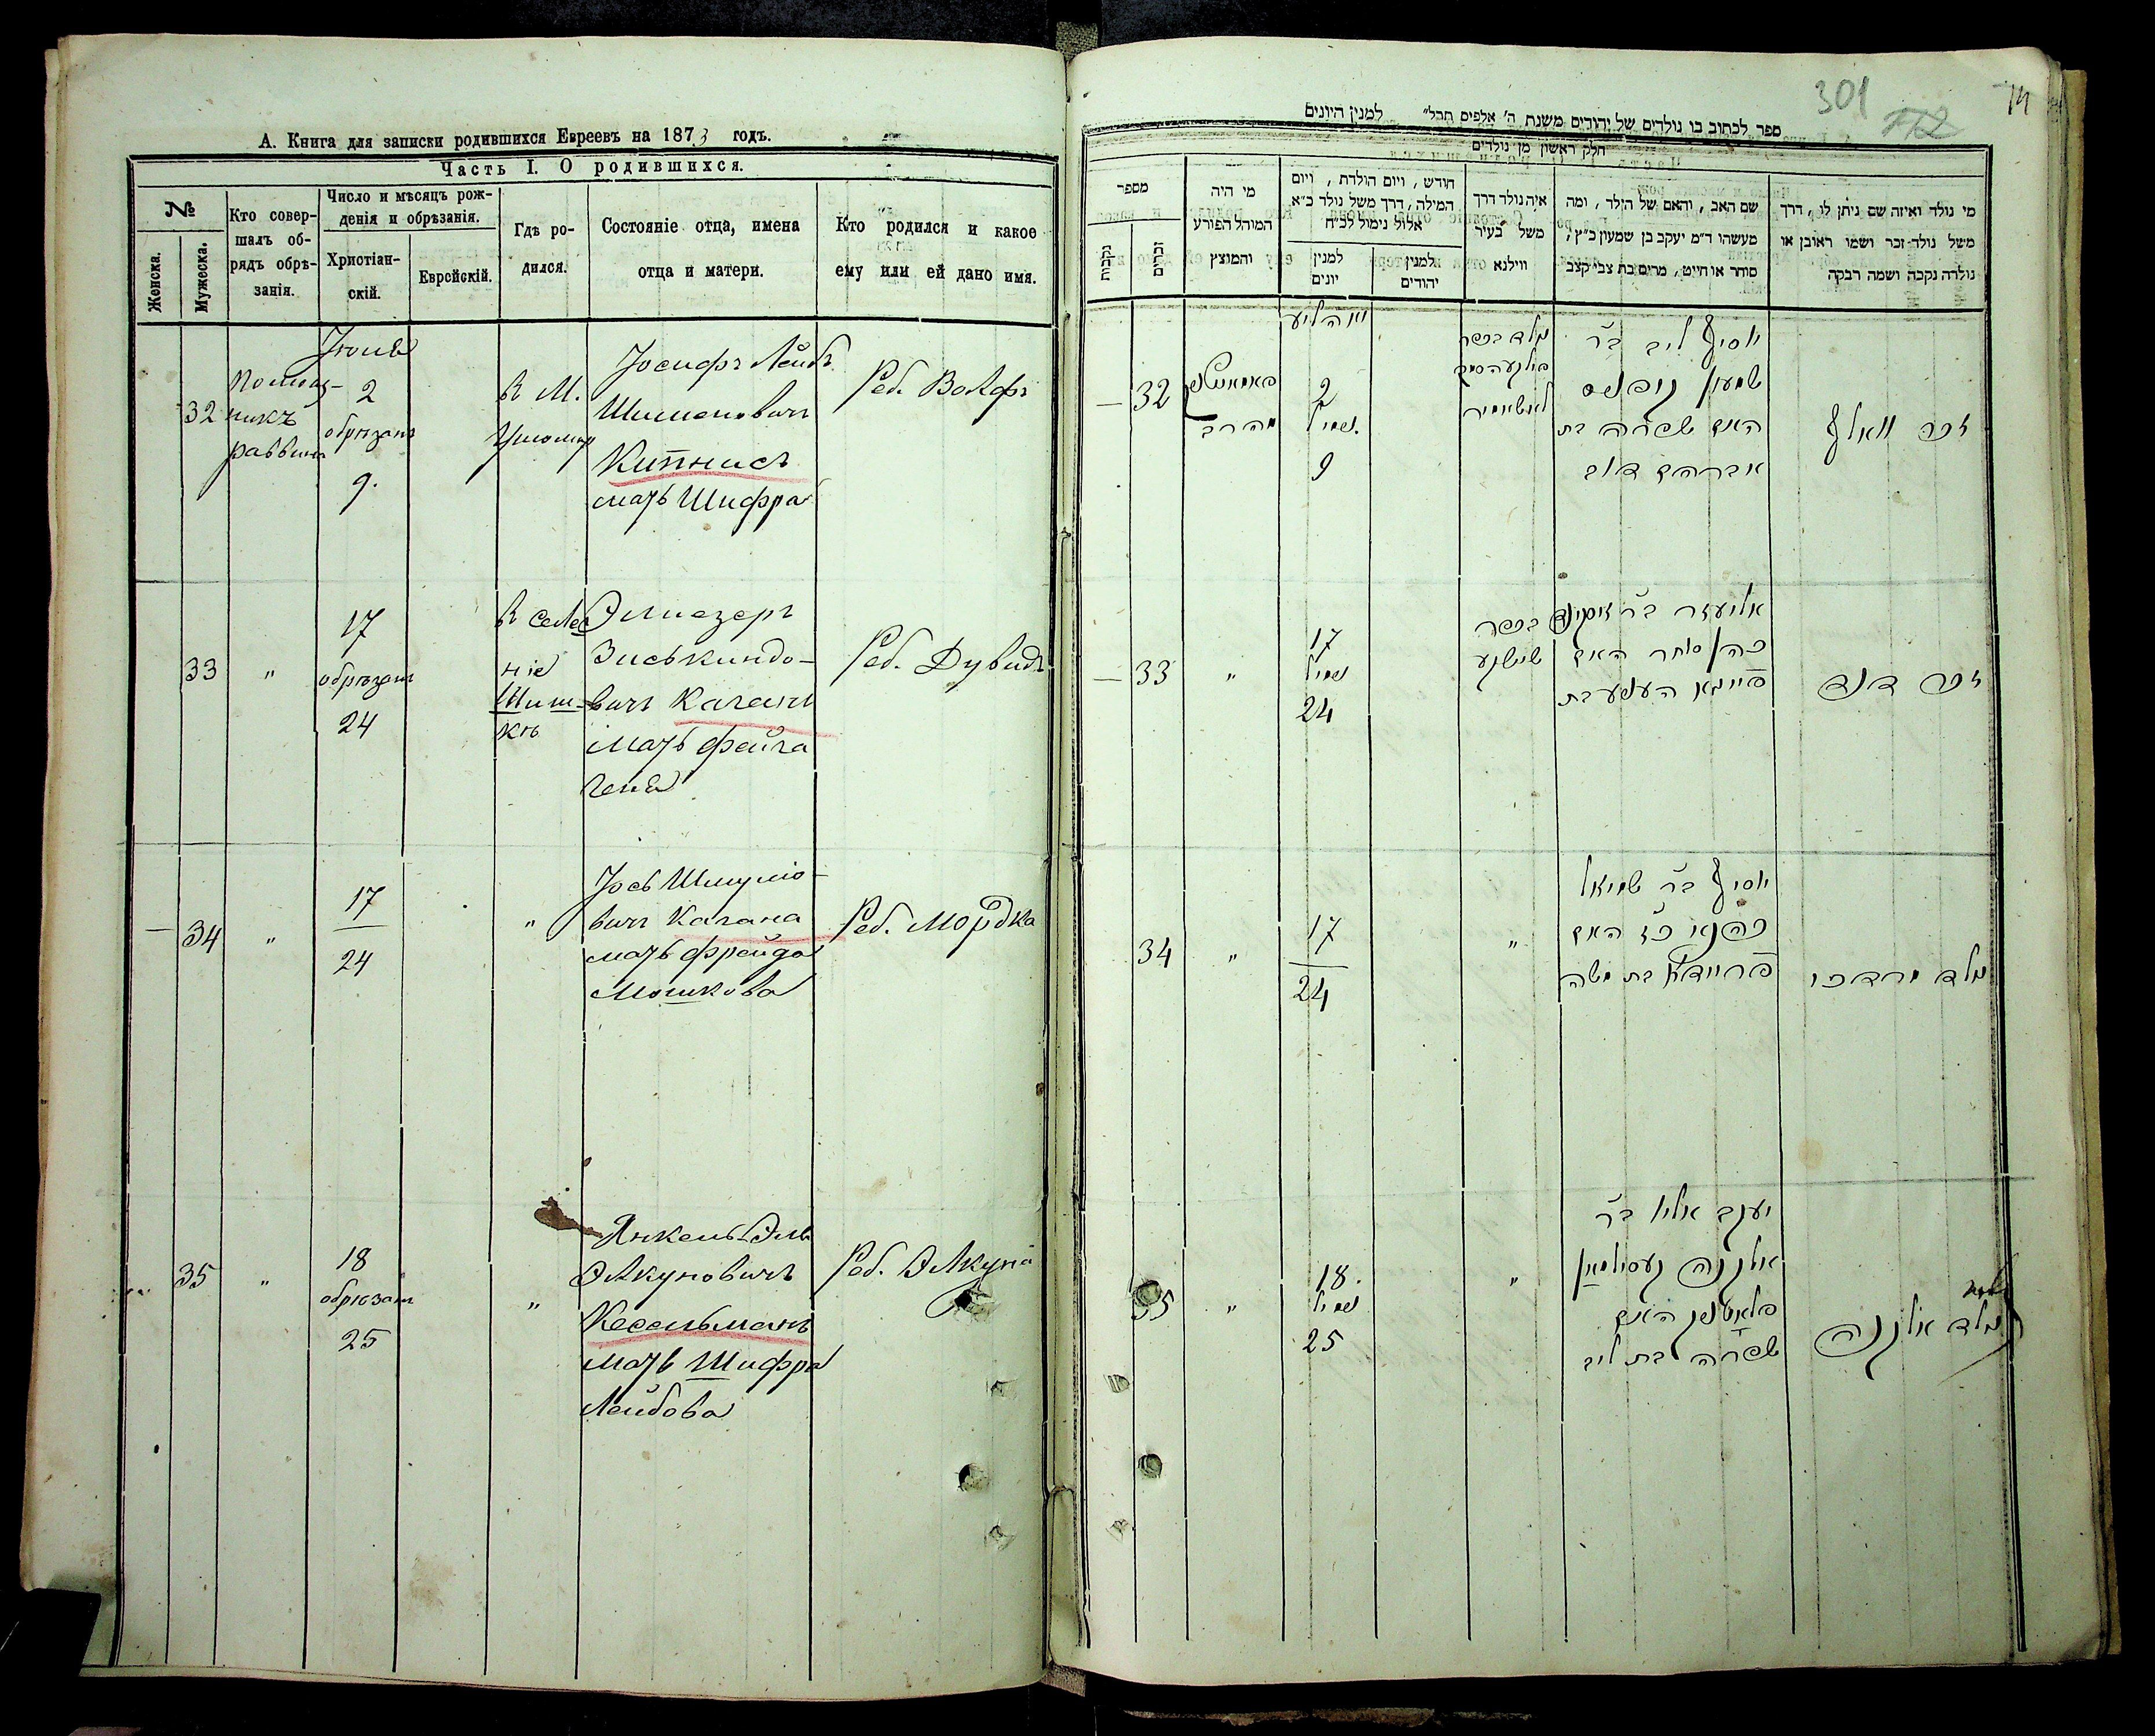 А. Книга для записки родившихся Евреевъ на 1873 годъ.
Часть I. О родившихся.
№
Женска.
Мужеска.
Кто совер-
шалъ об-
рядъ обрѣ-
занія.
Число и мѣсяцъ рож-
денія и обрѣзанія.
Христіан-
скій.
Еврейскій.
Гдѣ ро-
дился.
Состояніе отца, имена
отца и матери.
Кто родился и какое
ему или ей дано имя.
32
Помощ-
никъ
раввина
Іюня
2
обрѣзанъ
9.
В М.
Іосифъ Лейбъ
Шименовичъ
Кипнисъ
мать Шифра
Реб. Волфъ
33
"
17
обрѣзанъ
24
В селе
ніе
Шиш-
кѣ
Элиезеръ
Зиськиндо-
вичъ Каганъ
мать Фейга
Геня
Реб. Дувидъ
34
"
17
24
"
Іось Шмуліо-
вичъ Кагана
мать Фрейда
Мошкова
Реб. Мордка
35
"
18
обрѣзанъ
25
"
Янкель Эля
Элкуновичъ
Кесельманъ
мать Шифра
Лейбова
Реб. Элкуна
301
ספר לכתוב בו נולדים של יהודים משנת ה' אלפים תרל" למנין היונים
חלק ראשון מן נולדים
מספר
נקבות
זכרים
מי היה
המוהל הפורע
והמוצץ
חודש, ויום הולדת, ויום
המילה, דרך משל נולד כ"א
אלול נימול לכ"ח
למנין
יונים
למנין
יהודים
איה נולד דרך
משל בעיר
ווילנא
שם האב, והאם של הילד, ומה
מעשהו ד"מ יעקב בן שמעון כ"ץ,
סוחר או חייט, מרים בת צבי קצב
מי נולד ואיזה שם ניתן לו, דרך
משל נולד זכר ושמו ראובן או
נולדה נקבה ושמה רבקה
32
2
נימול
9
נולד בכפר
יוסף ליב ב"ר
שמעון קיפניס
האם שפרה בת
אברהם דוב
זכר וואלף
33
"
17
נימול
24
בכפר
אליעזר ב"ר זיסקינד
כהן סוחר האם
פייגא העניע בת
זכר דוד
34
"
17
24
"
יוסף ב"ר שמואל
האם
פריידא בת משה
נולד מרדכי
35
"
18.
נימול
25
"
יעקב אליו ב"ר
אלקנה קעסילמאן
האם
שפרה בת ליב
נולד אלקנה